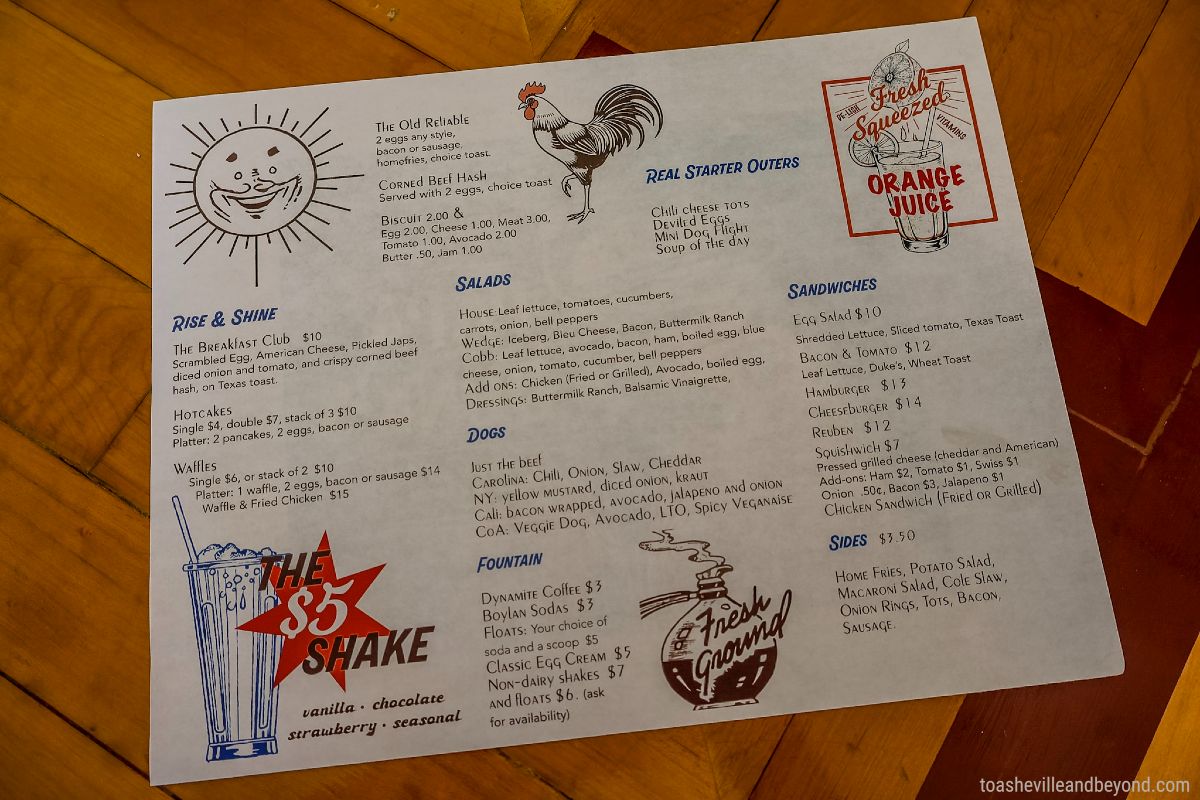 The Old Reliable
2 eggs any style,
bacon or sausage,
homefries, choice toast.
Corned Beef Hash
Served with 2 eggs, choice toast
Biscuit 2.00 &
Egg 2.00, Cheese 1.00, Meat 3.00,
Tomato 1.00, Avocado 2.00
Butter .50, Jam 1.00
Real Starter Outers
Chili cheese tots
Deviled Eggs
Mini Dog Flight
Soup of the day
Fresh
Squeezed
DE-LISH
VITAMINS
ORANGE
JUICE
Rise & Shine
The Breakfast Club $10
Scrambled Egg, American Cheese, Pickled Japs,
diced onion and tomato, and crispy corned beef
hash, on Texas toast.
Hotcakes
Single $4, double $7, stack of 3 $10
Platter: 2 pancakes, 2 eggs, bacon or sausage
Waffles
Single $6, or stack of 2 $10
Platter: 1 waffle, 2 eggs, bacon or sausage $14
Waffle & Fried Chicken $15
THE
$5
SHAKE
vanilla · chocolate
strawberry · seasonal
Salads
House: Leaf lettuce, tomatoes, cucumbers,
carrots, onion, bell peppers
Wedge: Iceberg, Bleu Cheese, Bacon, Buttermilk Ranch
Cobb: Leaf lettuce, avocado, bacon, ham, boiled egg, blue
cheese, onion, tomato, cucumber, bell peppers
Add ons: Chicken (Fried or Grilled), Avocado, boiled egg,
Dressings: Buttermilk Ranch, Balsamic Vinaigrette,
Dogs
Just the beef
Carolina: Chili, Onion, Slaw, Cheddar
NY: yellow mustard, diced onion, kraut
Cali: bacon wrapped, avocado, jalapeno and onion
CoA: Veggie Dog, Avocado, LTO, Spicy Veganaise
Fountain
Dynamite Coffee $3
Boylan Sodas $3
Floats: Your choice of
soda and a scoop $5
Classic Egg Cream $5
Non-dairy shakes $7
and floats $6. (ask
for availability)
Fresh
Ground
Sandwiches
Egg Salad $10
Shredded Lettuce, Sliced tomato, Texas Toast
Bacon & Tomato $12
Leaf Lettuce, Duke's, Wheat Toast
Hamburger $13
Cheesfburger $14
Reuben $12
Squishwich $7
Pressed grilled cheese (cheddar and American)
Add-ons: Ham $2, Tomato $1, Swiss $1
Onion .50¢, Bacon $3, Jalapeno $1
Chicken Sandwich (Fried or Grilled)
Sides $3.50
Home Fries, Potato Salad,
Macaroni Salad, Cole Slaw,
Onion Rings, Tots, Bacon,
Sausage.
toashevilleandbeyond.com